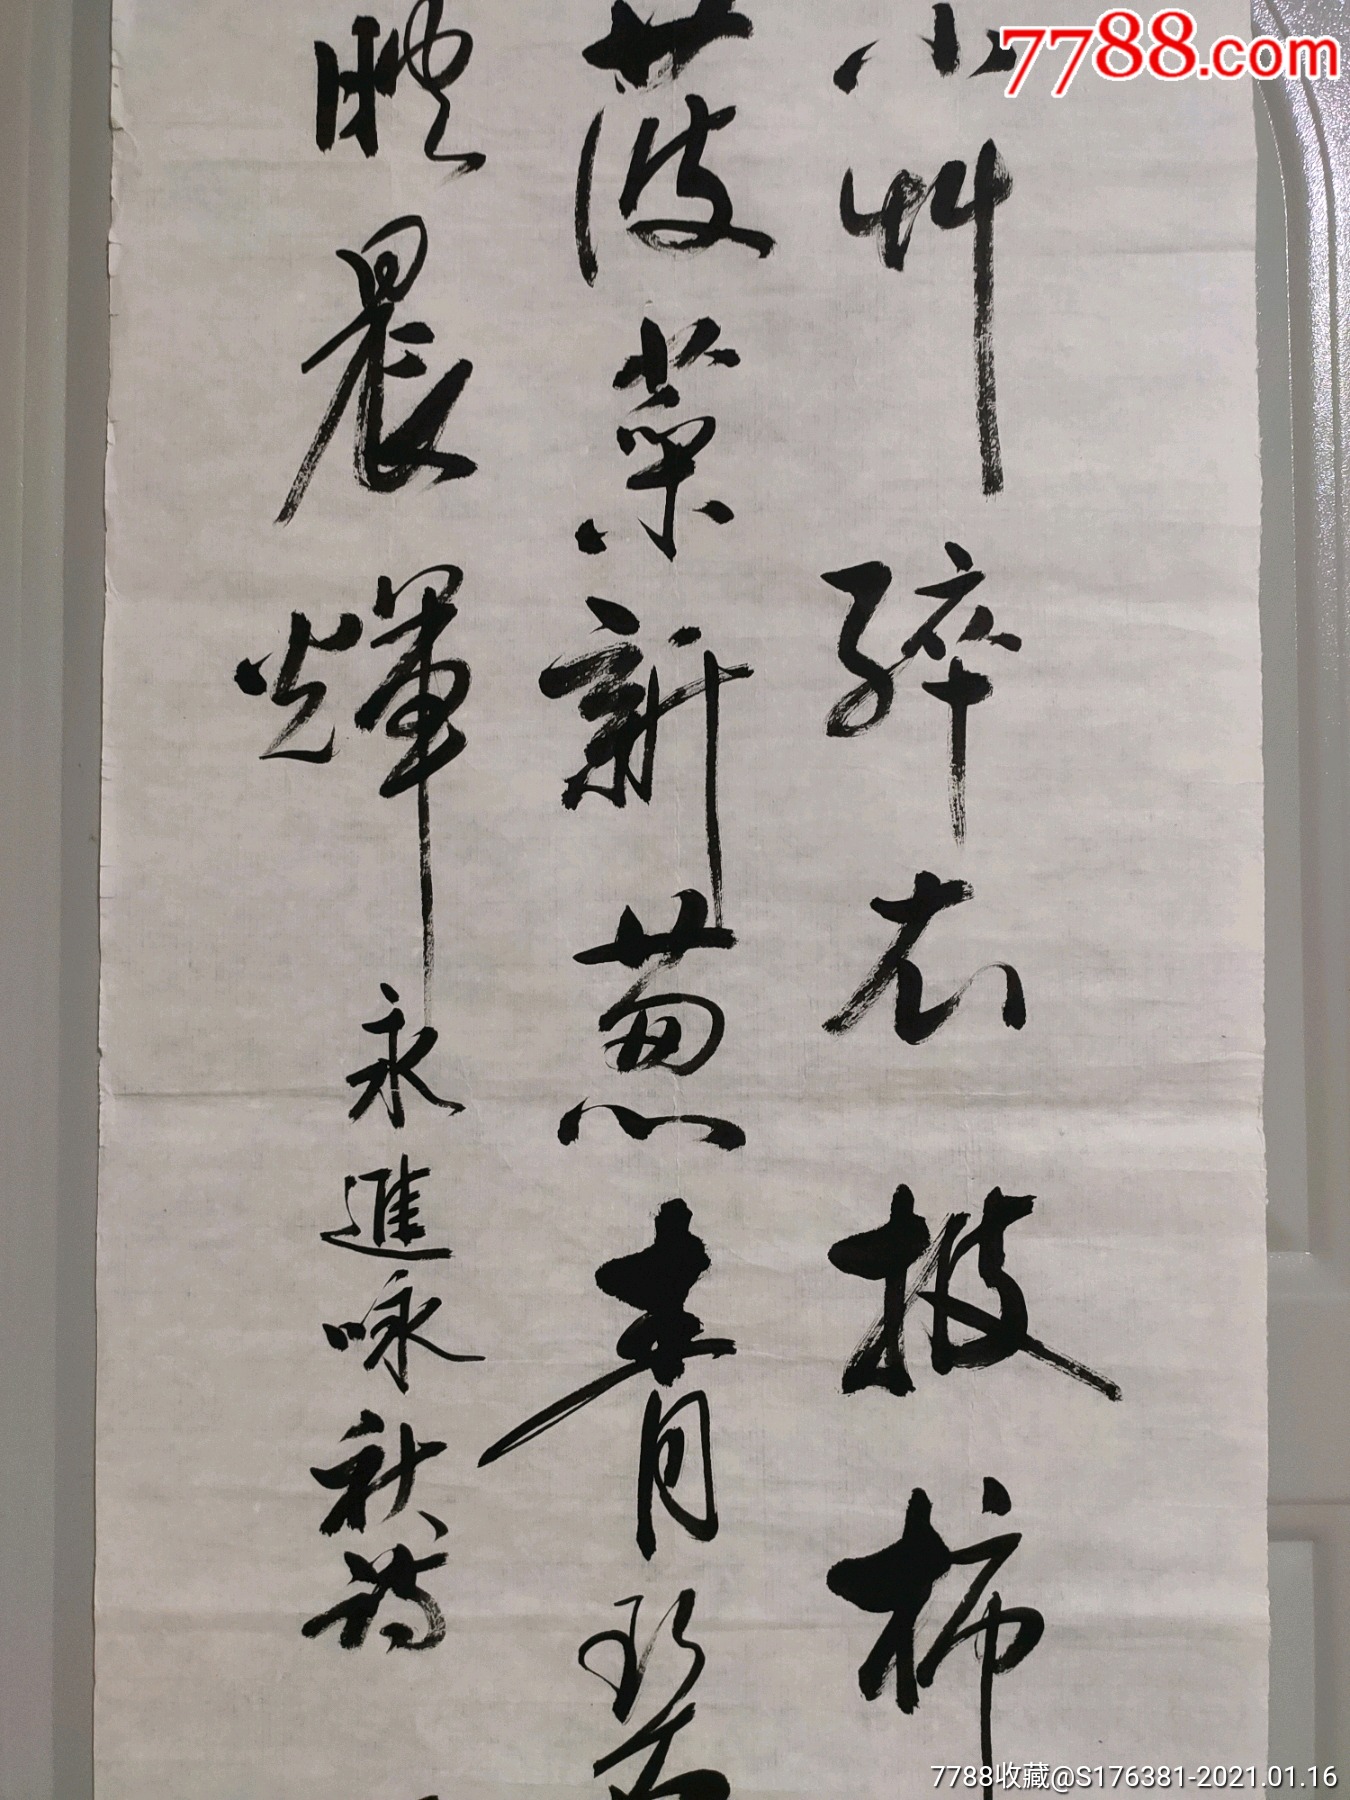 7788.com
小艸碎衣披柿
菠菜新葱青碧
映晨辉永進咏秋詩
7788收藏@S176381-2021.01.16